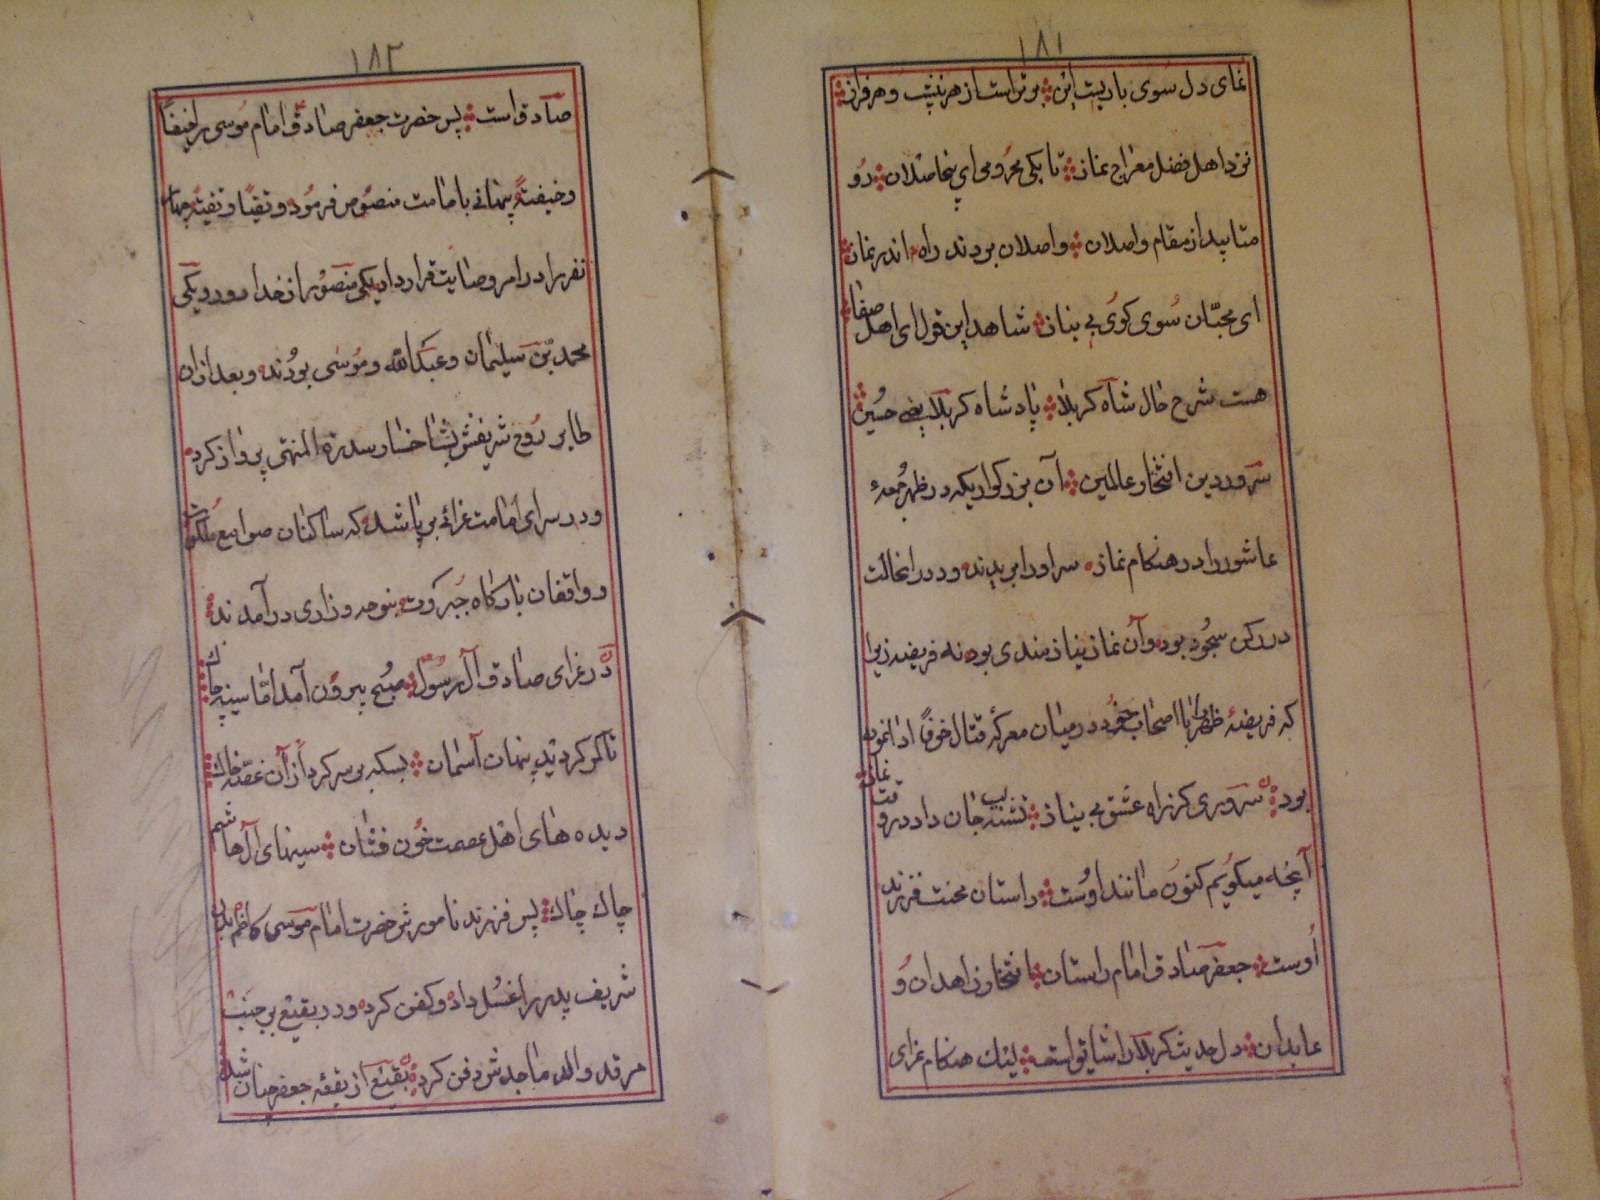 ۱۸۱
نمای دل سوی باریت این برتر است از هر نشیب و هر فراز
نزد اهل فضل معراج نماز تا بکی محرومی ای بیحاصلان رو
متابید از مقام واصلان واصلان بردند راه اندر نماز
ای محبّان سُوی کوی بی نیاز شاهد این قول ای اهل صفا
هست شرح حال شاه کربلا پادشاه کربلا یعنی حسین
سرور دین افتخار عالمین آن بزرگواریکه در ظهر جُمعهٔ
عاشورا در هنکام نماز سر او را بریدند و در آنحالت
در رکن سجود بود و آن نماز نیازمندی بود نه فریضه زیرا
که فریضهٔ ظهر را با اصحاب خود در میان معرکهٔ قتال خوفاً ادا نموده
بود سروری کز راه عشق بی نیاز تشنه لب جان داد در وقت نماز
آنچه میکویم کنون مانند اوست داستان محنت فرزند
اُوست جعفر صادق امام راستان افتخار زاهدان و
عابدان دل حدیث کربلا را شایق است لیک هنکام عزای
۱۸۲
صادق است پس حضرت جعفر صادق امام موسی را خیفاً
و خیفتهً پنهانی بامامت منصوص فرمود و تقیاً و تقیتهً چهار
نفر را در امر وصایت قرار داد یکی منصور از خدا دور و یکی
محمد بن سلیمان و عبدالله و موسی بودند و بعد از آن
طایر روح شریفش بشاخسار سدرة المنتهی پرواز کرد
و در سرای امامت عزائی بر پا شد که ساکنان صوامع ملکوت
و واقفان بارکاه جبروت بنوحه و زاری درآمدند
در عزای صادق آل رسول صبح بیرون آمد امّا سینه چاک
تا کمر کردید پنهان آسمان بسکه بر سر کرد از آن غصّه خاک
دیده های اهل عصمت خون فشان سینهای آل هاشم
چاک چاک پس فرزند نامورش حضرت امام موسی کاظم بدن
شریف پدر را غسل داد و کفن کرد و در بقیع بر جنب
مرقد والد ماجدش دفن کرد بقیع از بقعه جعفر چنان شد